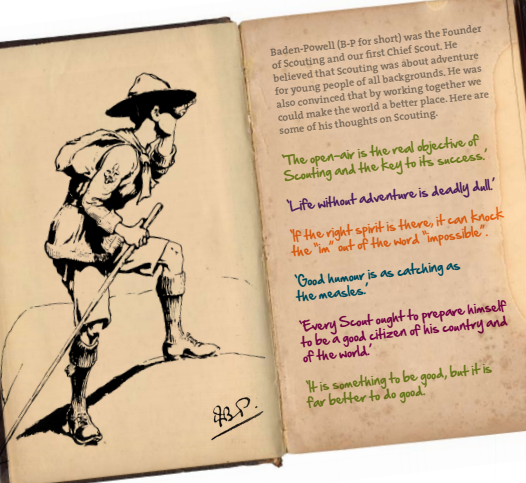 B-P.
Baden-Powell (B-P for short) was the Founder
of Scouting and our first Chief Scout. He
believed that Scouting was about adventure
for young people of all backgrounds. He was
also convinced that by working together we
could make the world a better place. Here are
some of his thoughts on Scouting.
'The open-air is the real objective of
Scouting and the key to its success.'
'Life without adventure is deadly dull.'
'If the right spirit is there, it can knock
the "im" out of the word "impossible".
'Good humour is as catching as
the measles.'
'Every Scout ought to prepare himself
to be a good citizen of his country and
of the world.'
'It is something to be good, but it is
far better to do good.'